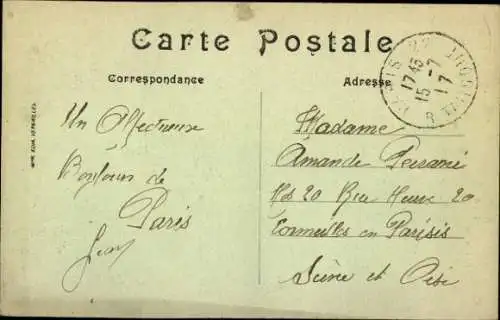 Carte Postale
Correspondance
Adresse
PARIS 22
17 45
15 - 7
17
Un Affectueux
Bonjour de
Paris
Jean
Madame
Amande
20 Rue 20
Cormeilles en Parisis
Seine et Oise